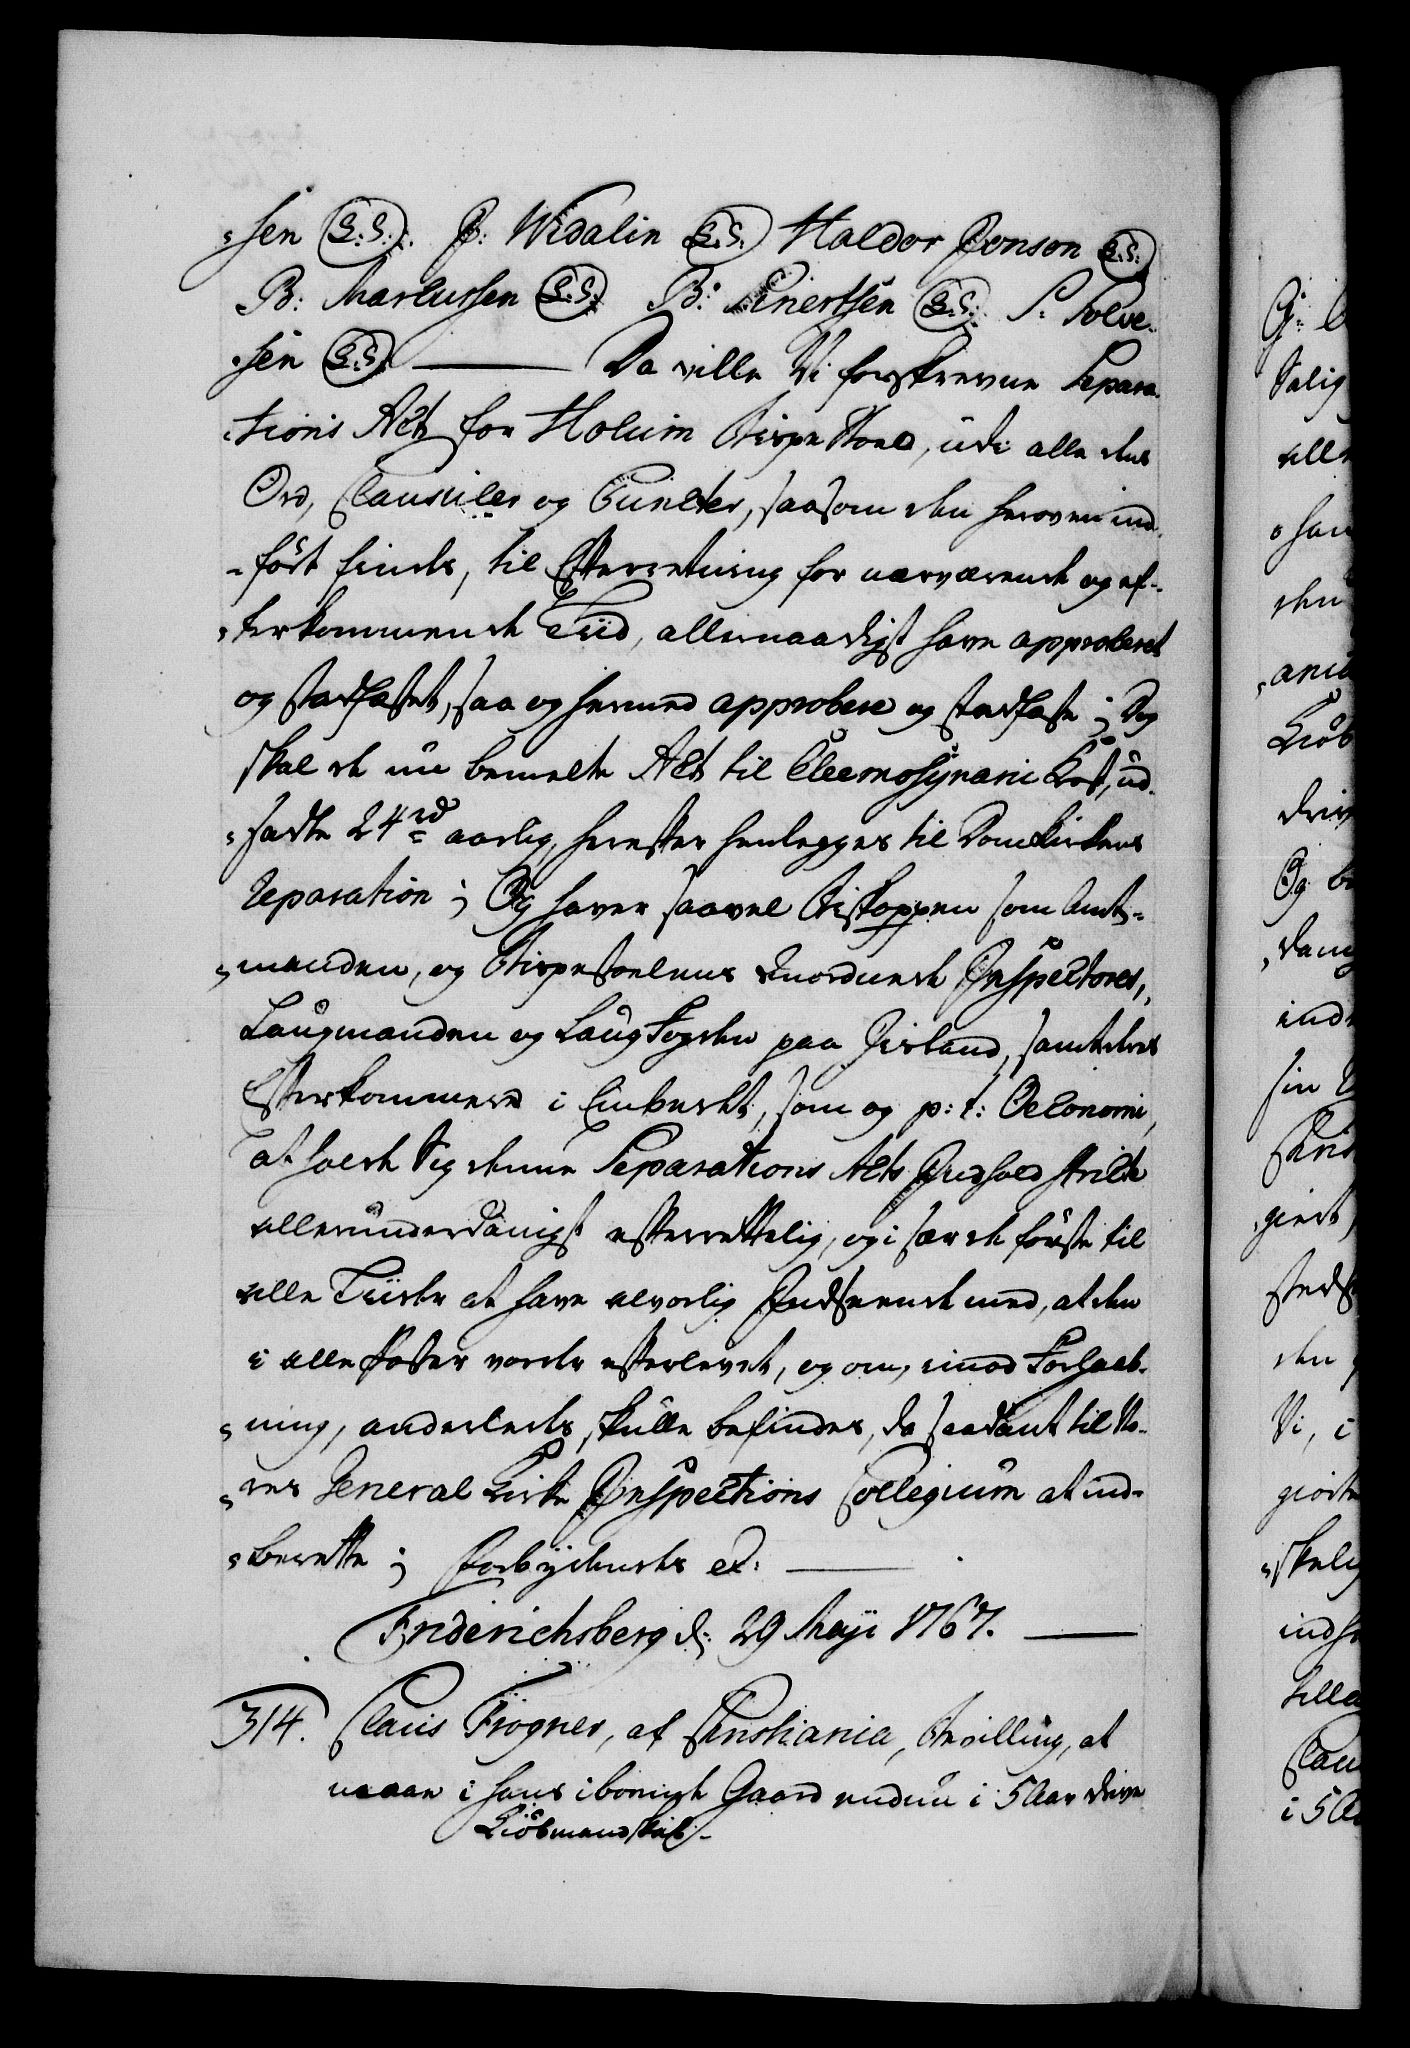 -sen (L:S:). J: Widalin (L.S.) Haldor Jonson (L.S.
B: Marcussen (L:S:) B: Einertsen (L:S:). S: Solve-
-sen (L:S:) — Da ville Vi forskrevne Separa-
-tions Act for Holum Bispe Stoel, udi alle dens
Ord, Clausuler og Puncter, saasom den heroven ind-
-ført findes, til Efterretning for nærværende og ef-
-terkommende Tiid, allernaadigst have approberet
og stadfæstet, saa og hermed approbere og stadfæste; Dog
skal de nu bemelte Act til Eleemosynarii Kost, ud-
-satte 24 rd aarlig, herefter henlegges til Domkirkens
Reparation; Og haver saavel Biskoppen som Amt-
-manden, og Bispestoelens anordnede Inspectores,
Laugmanden og LaugFogden paa Iisland, samt deres
Efterkommere i Embedet, som og p: t: Oeconomi,
at holde sig denne Separations Acts Indhold stricte
allerunderdanigst efterrettelig, og i sær de første til
alle Tiider at have alvorlig Indseende med, at den
i alle Poster vorder efterlevet, og om, imod Forhaab-
-ning, anderledes skulle befindes, da saadant til Vo-
-res General Kirke Inspections Collegium at ind-
-berette; Forbydendes et: —
Friderichsberg d: 29 Maji 1767. —
314. Claus Frogner, af Christiania, Bevilling, at
maae i hans iboende Gaard endnu i 5 Aar drive
Kiøbmandskab.-
G:
Salig
alle
han
den
Kiøb
driv
Og be
dan
ende
sin
Chris
gieret,
stedse
den
Vi, i
giort
skelig
indh
till
Clau
i 5 A